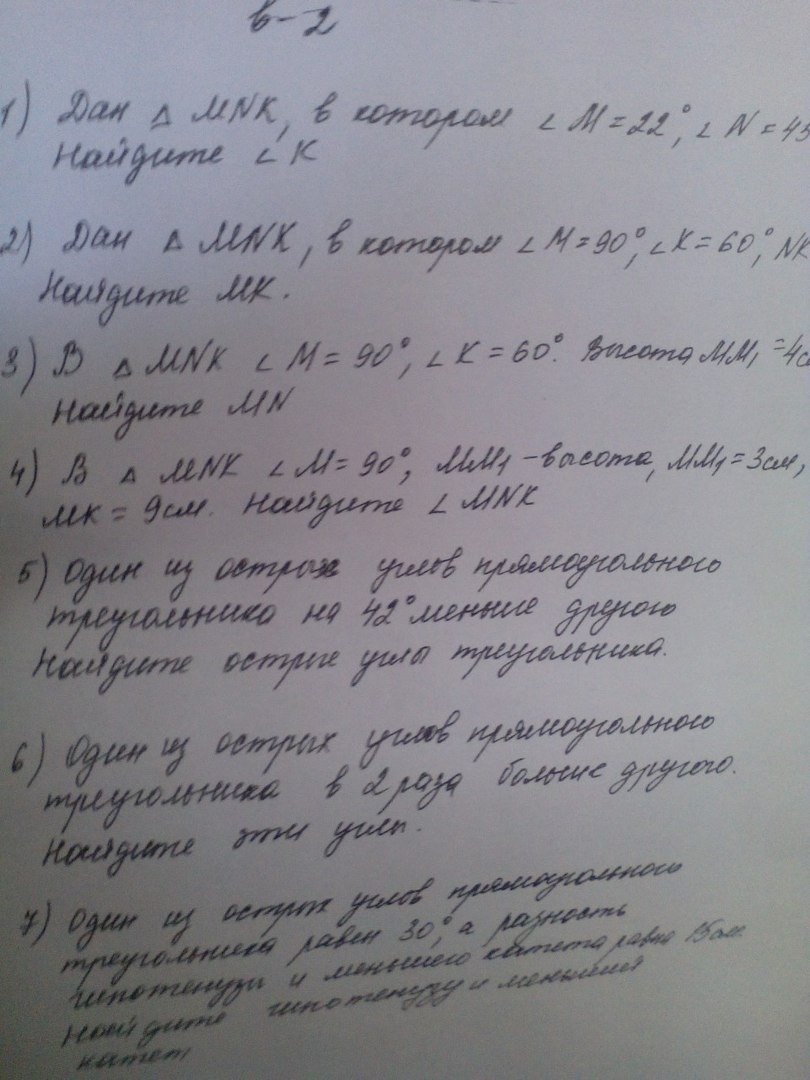 в-2
1) Дан △ MNK, в котором ∠ M = 22°, ∠ N = 45
Найдите ∠ K
2) Дан △ MNK, в котором ∠ M = 90°, ∠ K = 60°, NK
Найдите MK.
3) В △ MNK ∠ M = 90°, ∠ K = 60°. Высота MM₁ = 4с
Найдите MN
4) В △ MNK ∠ M = 90°, MM₁ - высота, MM₁ = 3см,
MK = 9см. Найдите ∠ MNK
5) Один из острых углов прямоугольного
треугольника на 42° меньше другого
Найдите острые углы треугольника.
6) Один из острых углов прямоугольного
треугольника в 2 раза больше другого.
Найдите эти углы.
7) Один из острых углов прямоугольного
треугольника равен 30°, а разность
гипотенузы и меньшего катета равна 15см
Найдите гипотенузу и меньший
катет